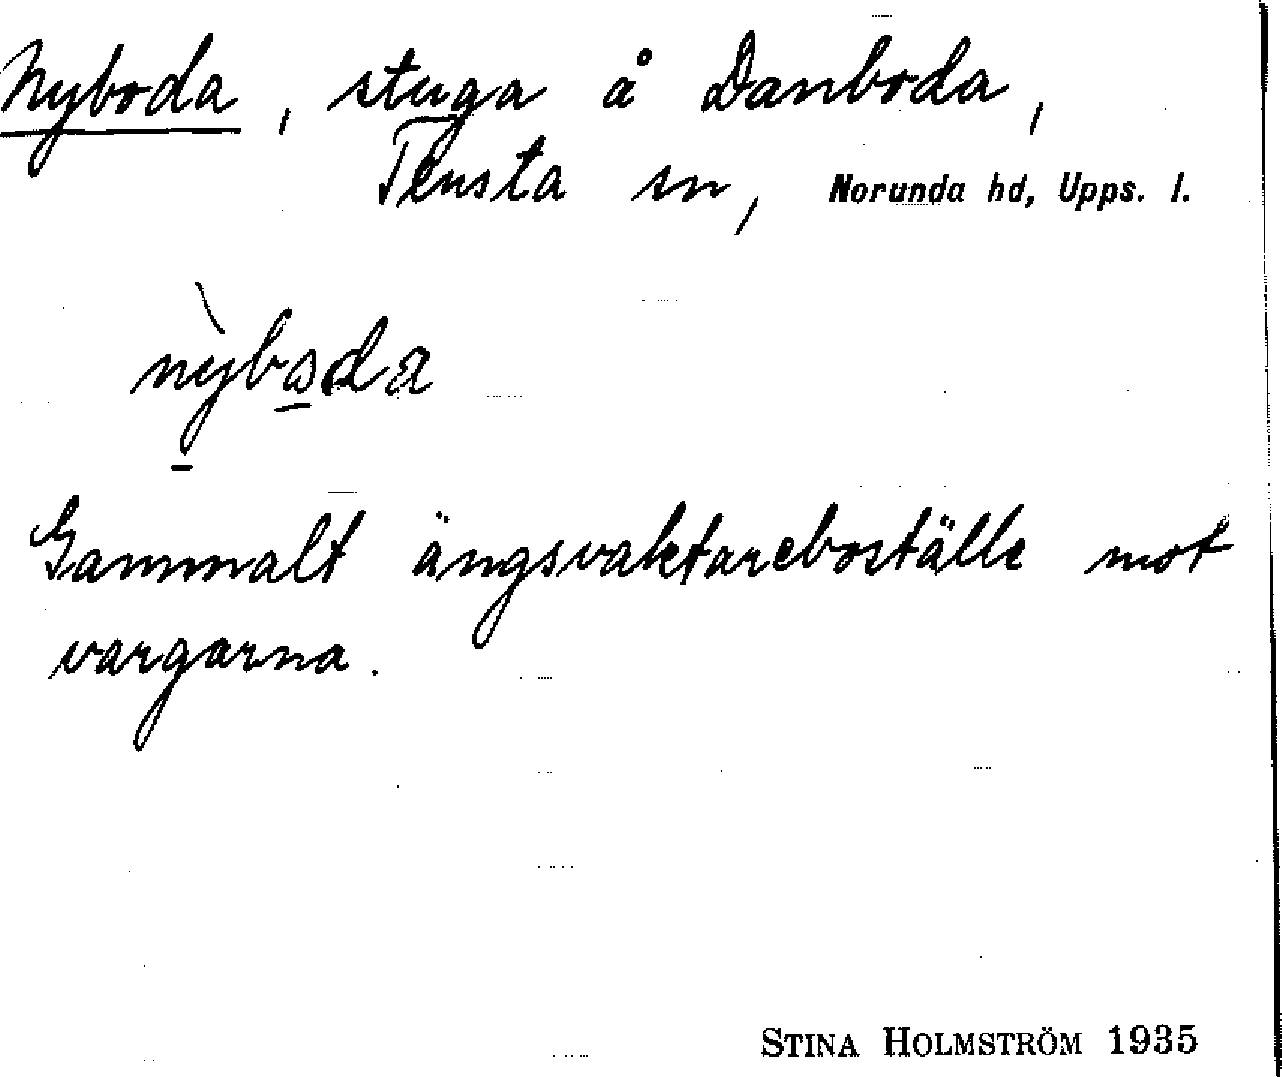 Nyboda, stuga å Danboda,
Tensta sn, Norunda hd, Upps. l.
nỳbo̲da
Gammalt ängsvaktareboställe mot
vargarna.
STINA HOLMSTRÖM 1935